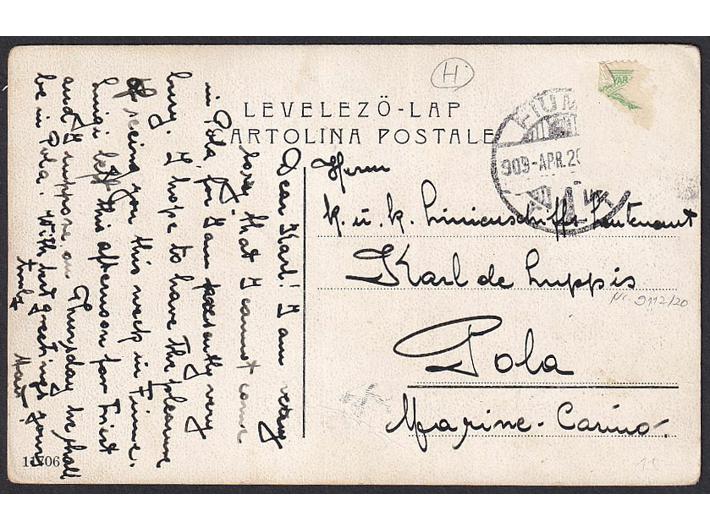 H
LEVELEZŐ-LAP
CARTOLINA POSTALE
FIUM
909-APR.20
YAR
Dear Karl! I am very
sorry that I cannot come
in Pola for I am presently very
busy. I hope to have the pleasure
of seeing you this week in Fiume.
Luigi left this afternoon for Triest
and I suppose on Thursday he shall
be in Pola. With best greetings yours
truly
Herrn
k. u. k. Linienschiffs-Leutenant
Karl de Luppis
Nr. 9112/20
Pola
Marine-Casino
11706